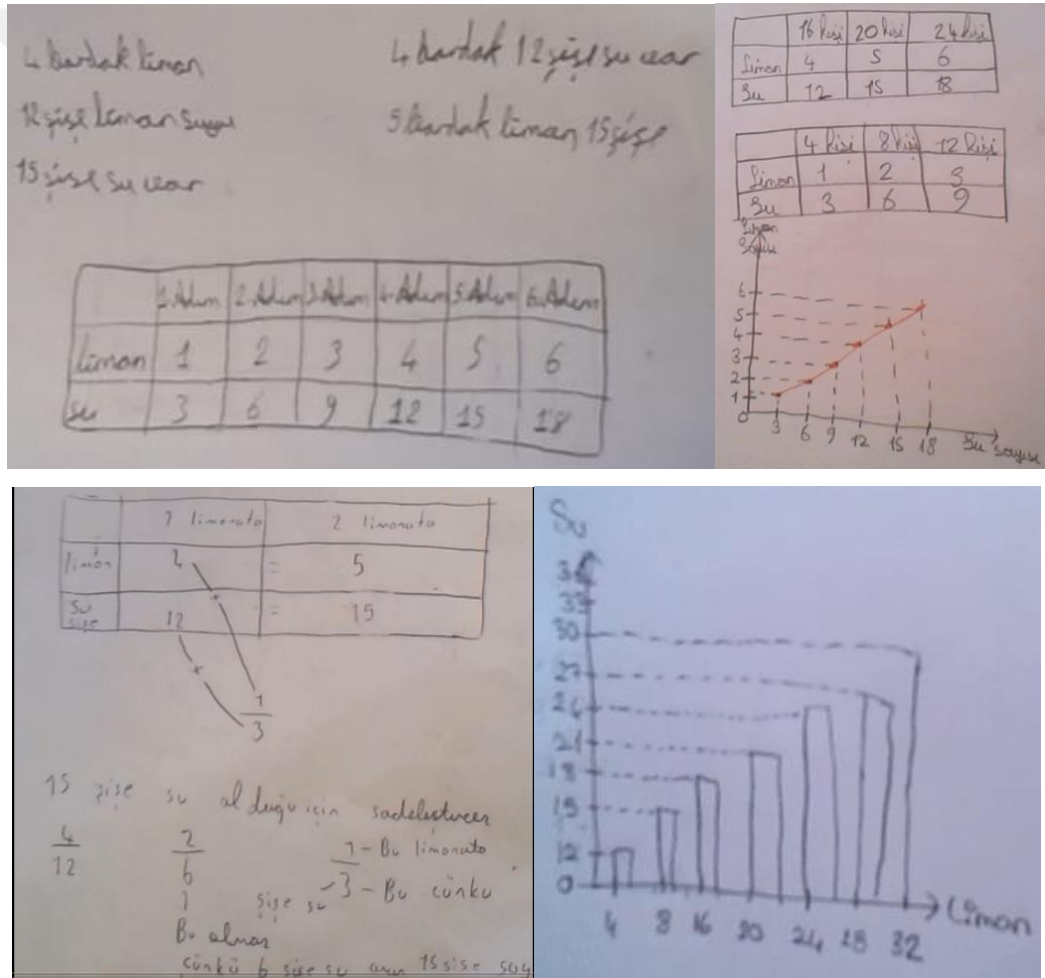 4 bardak limon
12 şişe limon suyu
15 şişe su var
4 bardak 12 şişe su var
5 bardak limon 15 şişe
1.Adım 2.Adım 3.Adım 4.Adım 5.Adım 6.Adım
limon 1 2 3 4 5 6
su 3 6 9 12 15 18
16 kişi 20 kişi 24 kişi
limon 4 5 6
Su 12 15 18
4 kişi 8 kişi 12 kişi
limon 1 2 3
Su 3 6 9
Sayısı
6
5
4
3
2
1
0
3 6 9 12 15 18 Su sayısı
1 limonata 2 limonata
limon 4 = 5
su şişe 12 = 15
1
3
15 şişe su aldığı için
4
12
2
6
1 - Bu limonata
3 - Bu çünkü
1 şişe su
Bu
çünkü 6 şişe su 15 şişe
Su
33
30
27
24
21
18
15
12
0
4 8 16 20 24 28 32 Limon